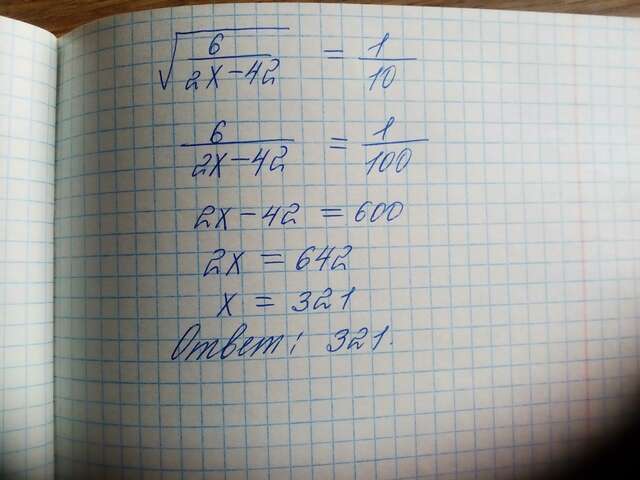 √(6/(2x-42)) = 1/10
6/(2x-42) = 1/100
2x-42 = 600
2x = 642
x = 321
Ответ: 321.